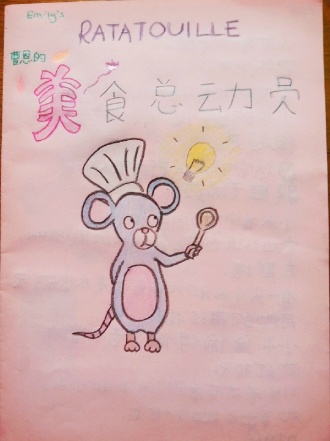 Emily's
RATATOUILLE
曹恩的
美食总动员